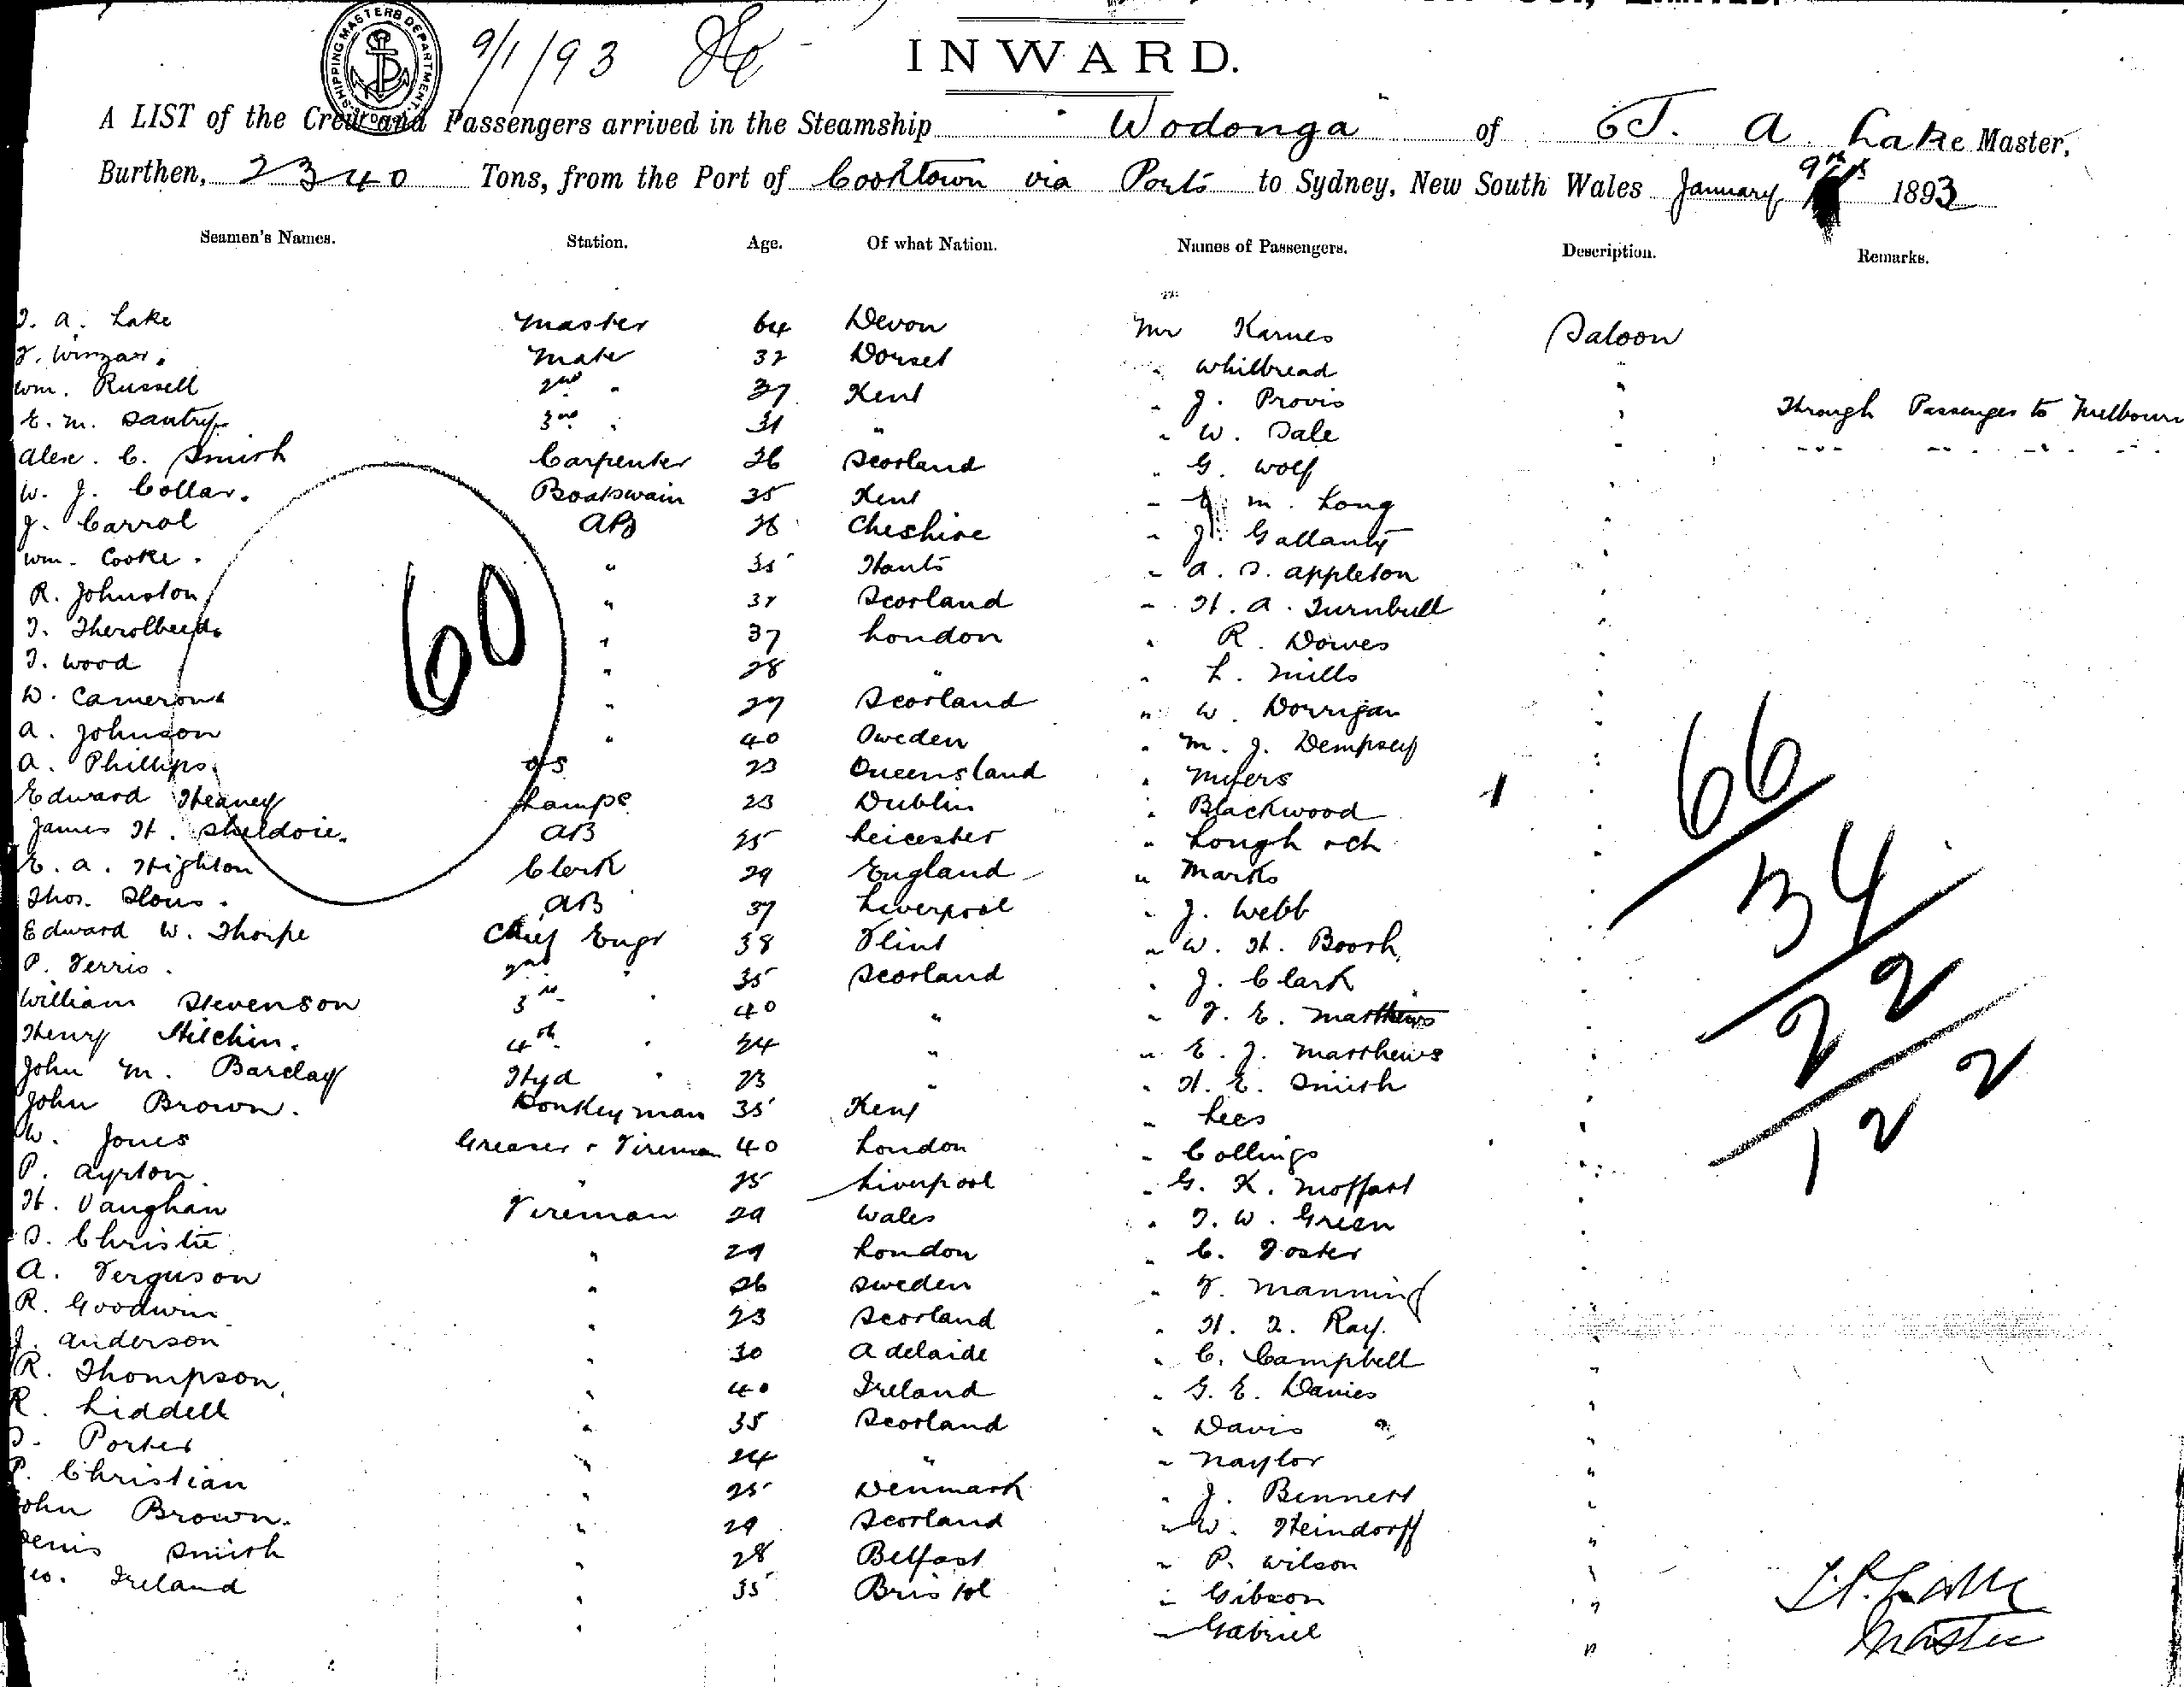 SHIPPING MASTERS DEPARTMENT
9/1/93
INWARD.
A LIST of the Crew and Passengers arrived in the Steamship "Wodonga" of J. A. Lake Master,
Burthen, 2340 Tons, from the Port of Cooktown via Ports to Sydney, New South Wales January 9th 1893
Seamen's Names. Station. Age. Of what Nation. Names of Passengers. Description. Remarks.
J. A. Lake Master 64 Devon Mr Karnes Saloon
Mate 32 Dorset " Whitbread "
Wm. Russell 2nd " 37 Kent " J. Provis " Through Passenger to Melbourn
E. M. Santry 3rd " 31 " " W. Sale " " " "
Alex. C. Smith Carpenter 26 Scotland " G. Wolf
W. J. Collar. Boatswain 35 Kent " J. M. Long
J. Carrol AB 26 Cheshire " J. Gallanty "
Wm. Cooke. " 35 Hants " A. S. Appleton "
R. Johnston " Scotland " H. A. Turnbull "
" 37 London " R. Dowes "
J. Wood " 28 " " L. Mills "
D. Cameron " 29 Scotland " W. Dorrigan "
A. Johnson " 40 Sweden " M. J. Dempsey "
A. Phillips OS 23 Queensland " Myers "
Edward Heaney Lamps 23 Dublin " Blackwood "
James H. AB 25 Leicester " Lough "
E. A. Highton Clerk 29 England " Marks "
Thos. AB 37 Liverpool " J. Webb "
Edward W. Thorpe Chief Engr 38 Flint " W. H. Booth "
P. Ferris. 2nd " 35 Scotland " J. Clark "
William Stevenson 3rd " 40 " " F. E. Matthews "
Henry Hitchin. 4th " 24 " " E. J. Matthews "
John M. Barclay Hyd " 23 " " H. E. Smith "
John Brown. Donkeyman 35 Kent " Lees "
W. Jones Greaser & Fireman 40 London " Collings "
P. Ayrton. " 25 Liverpool " G. K. Moffatt "
H. Vaughan Fireman 29 Wales " T. W. Green "
S. Christie " 29 London " C. Foster "
A. Ferguson " 26 Sweden " F. Manning "
R. Goodwin " 23 Scotland " H. Ray. "
J. Anderson " 30 Adelaide " C. Campbell "
R. Thompson. " 40 Ireland " G. E. Davies "
R. Liddell " 35 Scotland " Davis "
Porter " 24 " " Naylor "
P. Christian " 25 Denmark " J. Bennett "
John Brown. " 29 Scotland " W. Heindorff "
Denis Smith " 28 Belfast " P. Wilson "
Geo. Ireland " 35 Bristol " Gibson "
" " Gabriel "
60
66
34
22
122
Master